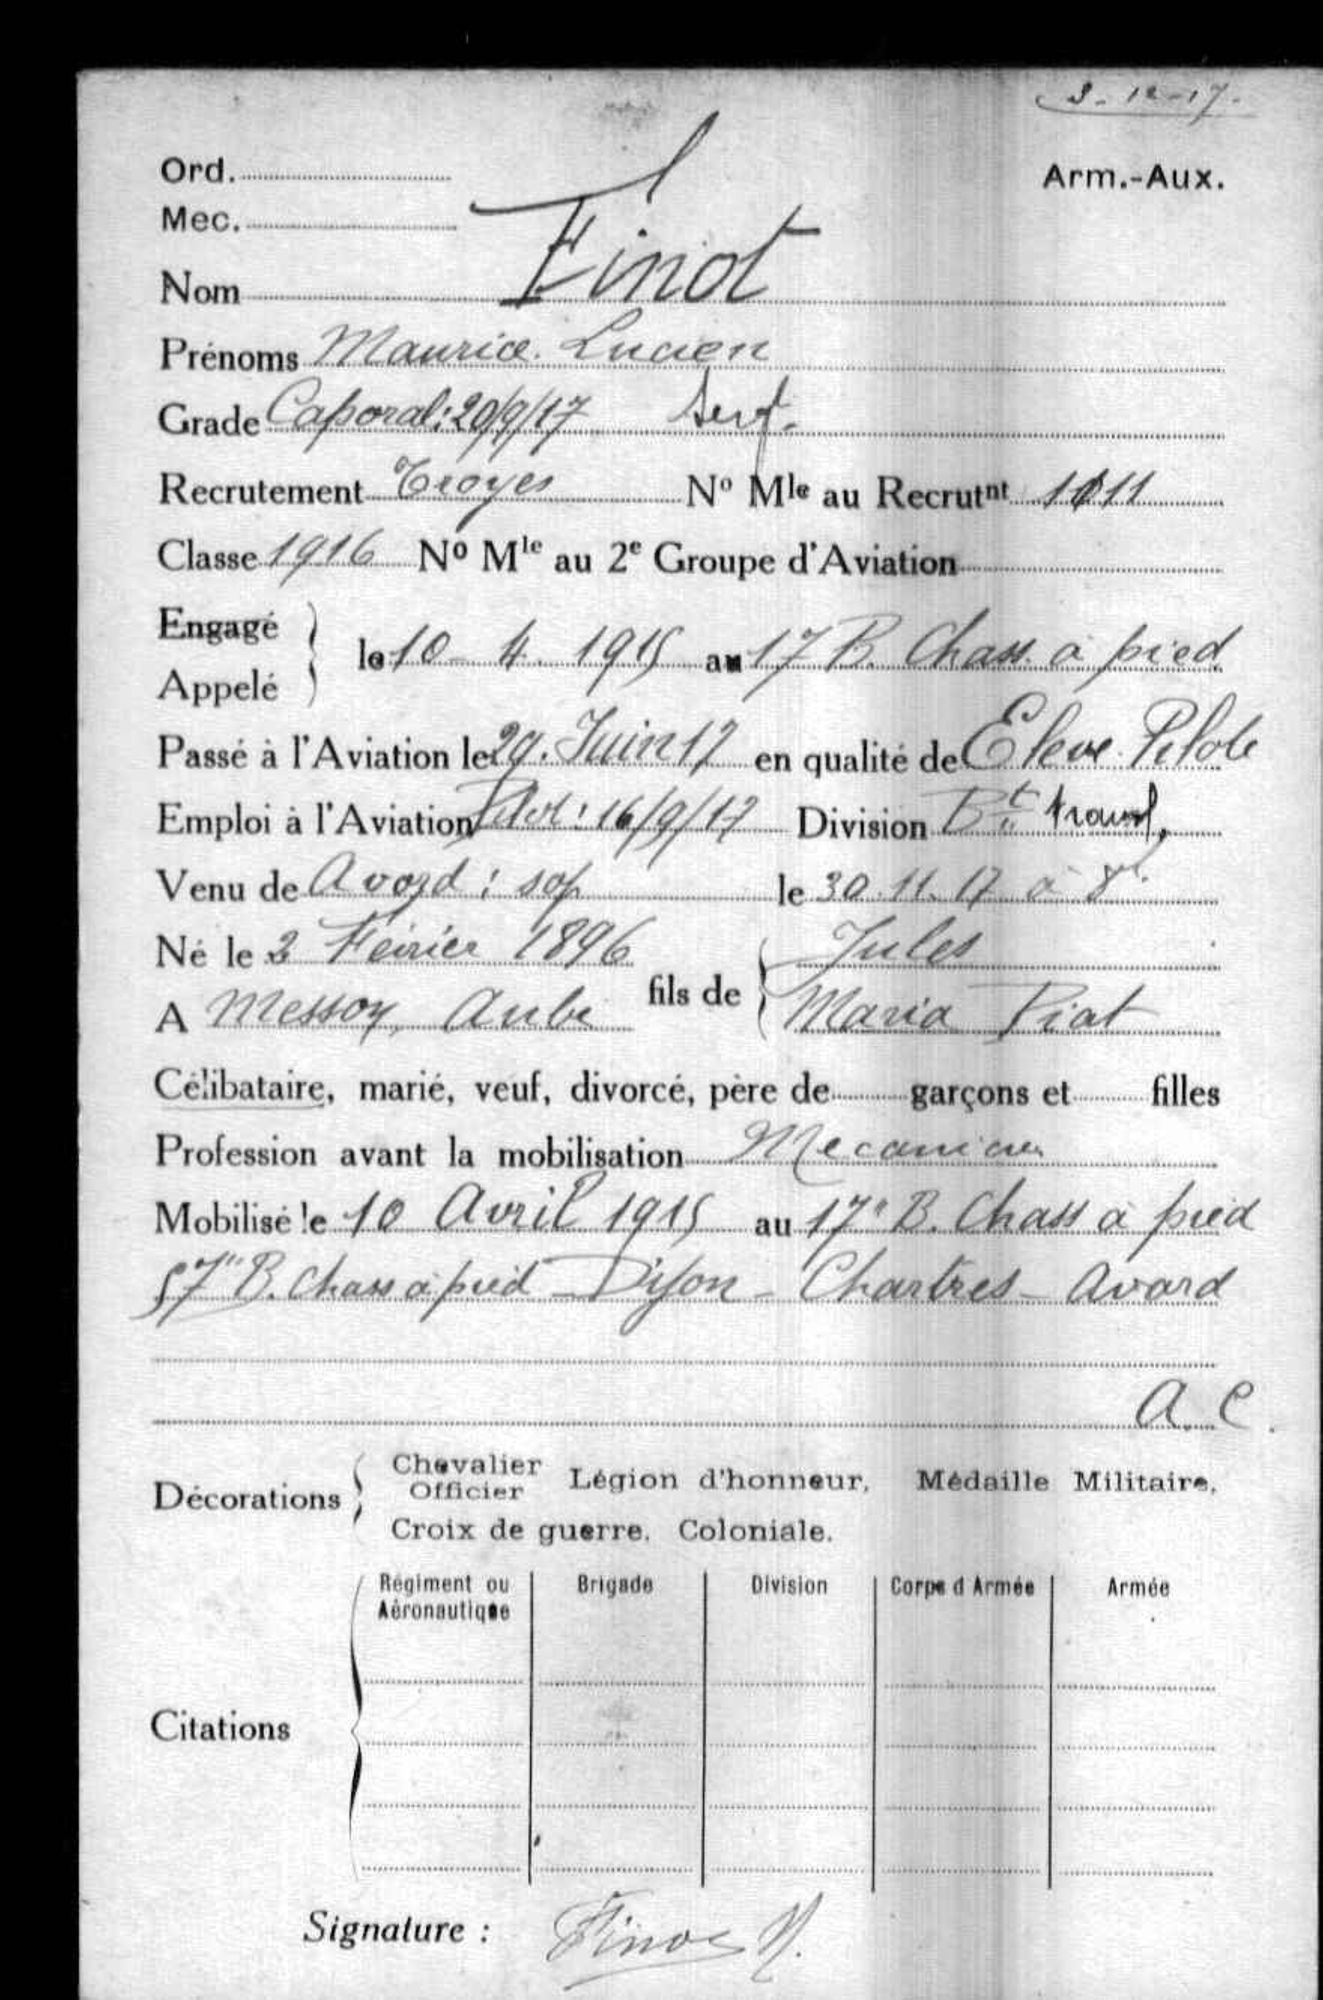 3-12-17-
Ord.
Arm.-Aux.
Mec.
Nom Finot
Prénoms Maurice. Lucien
Grade Caporal: 20/9/17
Recrutement Troyes Nº Mle au Recrutnt 1011
Classe 1916 Nº Mle au 2e Groupe d'Aviation
Engagé
Appelé
le 10 - 4. 1915 au 17 B. Chass. à pied
Passé à l'Aviation le 29. Juin 17 en qualité de Eleve Pilote
Emploi à l'Aviation Pilot: 16/9/17 Division Bt
Venu de Avord: sop le 30.11.17 à
Né le 2 Février 1896
A Messon, Aube
fils de
Jules
Maria Piat
Célibataire, marié, veuf, divorcé, père de garçons et filles
Profession avant la mobilisation Mecanicien
Mobilisé le 10 Avril 1915 au 17e B. Chass à pied
57e B. Chass à pied - Dijon - Chartres - Avord
A. C.
Décorations
Chevalier
Officier
Légion d'honneur, Médaille Militaire,
Croix de guerre, Coloniale.
Régiment ou Aéronautique Brigade Division Corps d Armée Armée
Citations
Signature : Finot M.